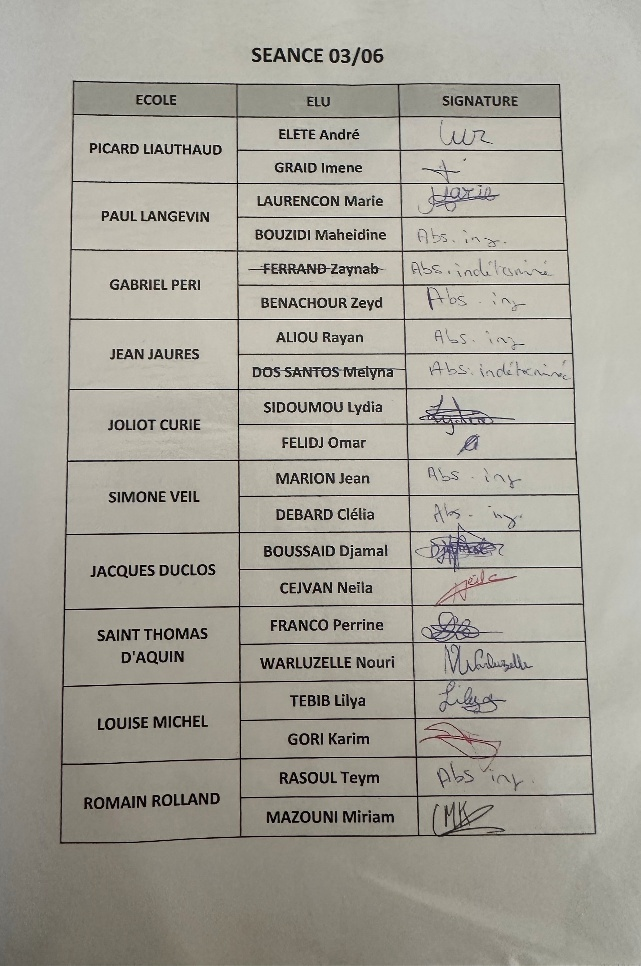 SEANCE 03/06
ECOLE ELU SIGNATURE
PICARD LIAUTHAUD
ELETE André
GRAID Imene
PAUL LANGEVIN
LAURENCON Marie Marie
BOUZIDI Maheidine Abs. inj.
GABRIEL PERI
FERRAND Zaynab Abs. indéterminé
BENACHOUR Zeyd Abs. inj
JEAN JAURES
ALIOU Rayan Abs. inj
DOS SANTOS Melyna Abs. indéterminé
JOLIOT CURIE
SIDOUMOU Lydia Lydia
FELIDJ Omar
SIMONE VEIL
MARION Jean Abs. inj
DEBARD Clélia Abs. inj.
JACQUES DUCLOS
BOUSSAID Djamal
CEJVAN Neila Neila
SAINT THOMAS
D'AQUIN
FRANCO Perrine
WARLUZELLE Nouri NWarluzelle
LOUISE MICHEL
TEBIB Lilya Lilya
GORI Karim
ROMAIN ROLLAND
RASOUL Teym Abs inj.
MAZOUNI Miriam MK